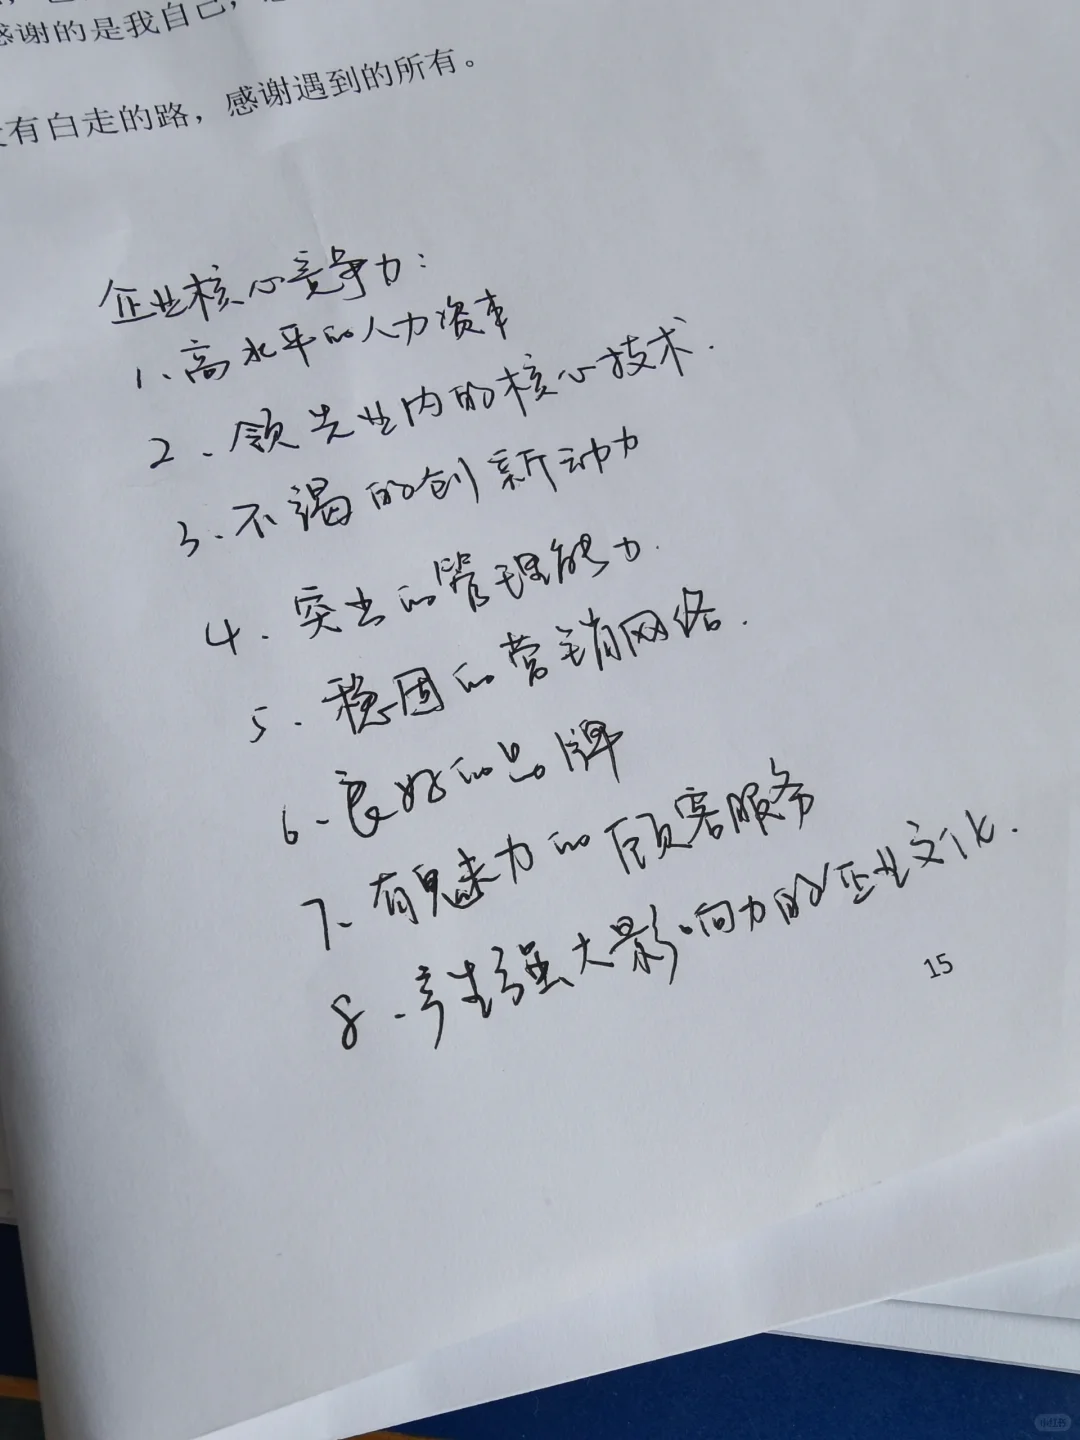 感谢的是我自己，
有白走的路，感谢遇到的所有。
企业核心竞争力：
1、高水平的人力资本
2、领先业内的核心技术.
3、不竭的创新动力
4.突出的管理能力.
5.稳固的营销网络.
6.良好的品牌
7、有魅力的顾客服务
8.产生强大影响力的企业文化.
15
小红书